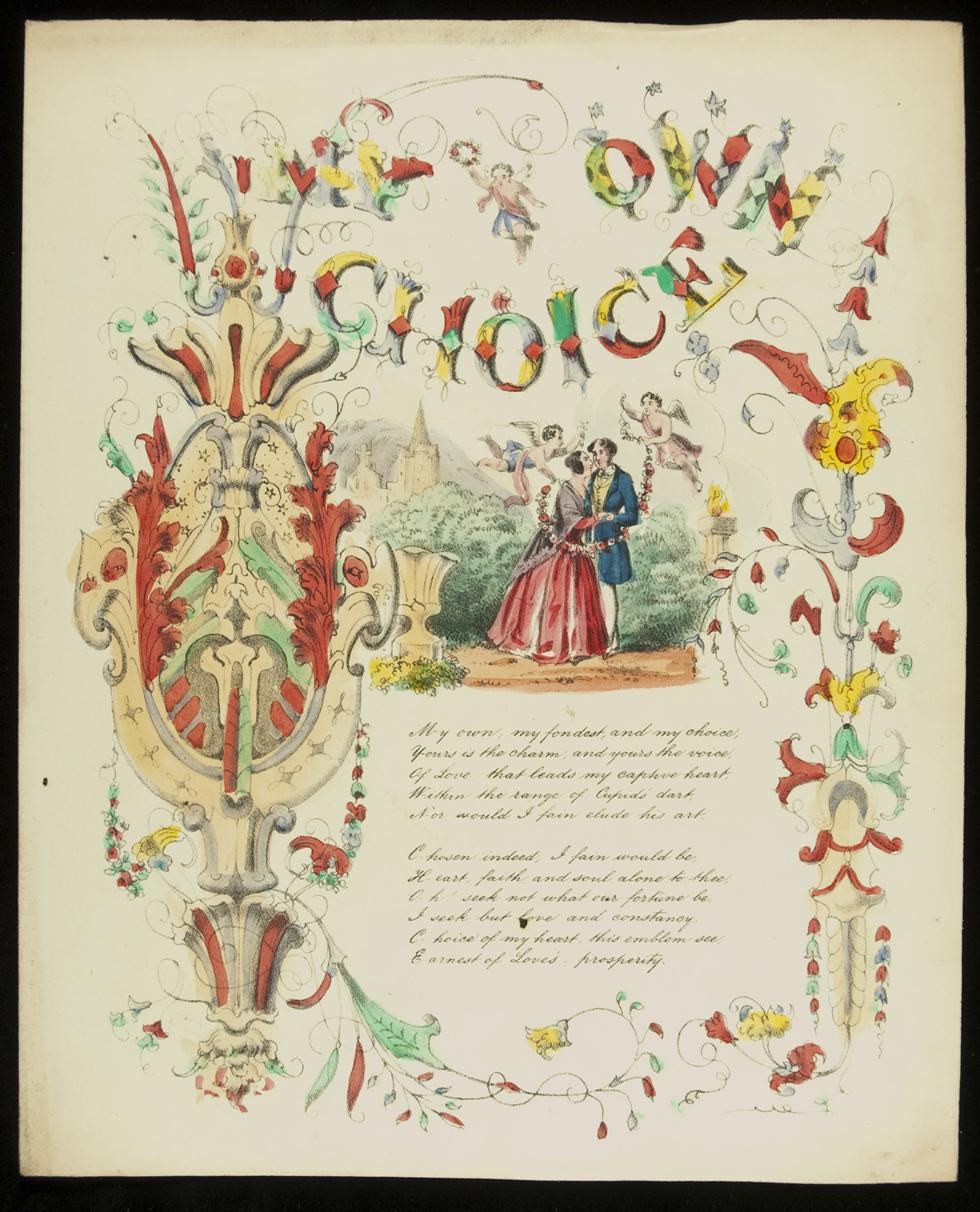 MY OWN
CHOICE
My own, my fondest, and my choice,
Yours is the charm, and yours the voice,
Of Love that leads my captive heart.
Within the range of Cupids dart,
Nor would I fain elude his art.
Chosen indeed, I fain would be,
Heart, faith and soul alone to thee,
Oh! seek not what our fortune be,
I seek but love and constancy,
Choice of my heart, this emblem see,
Earnest of Love's - prosperity.